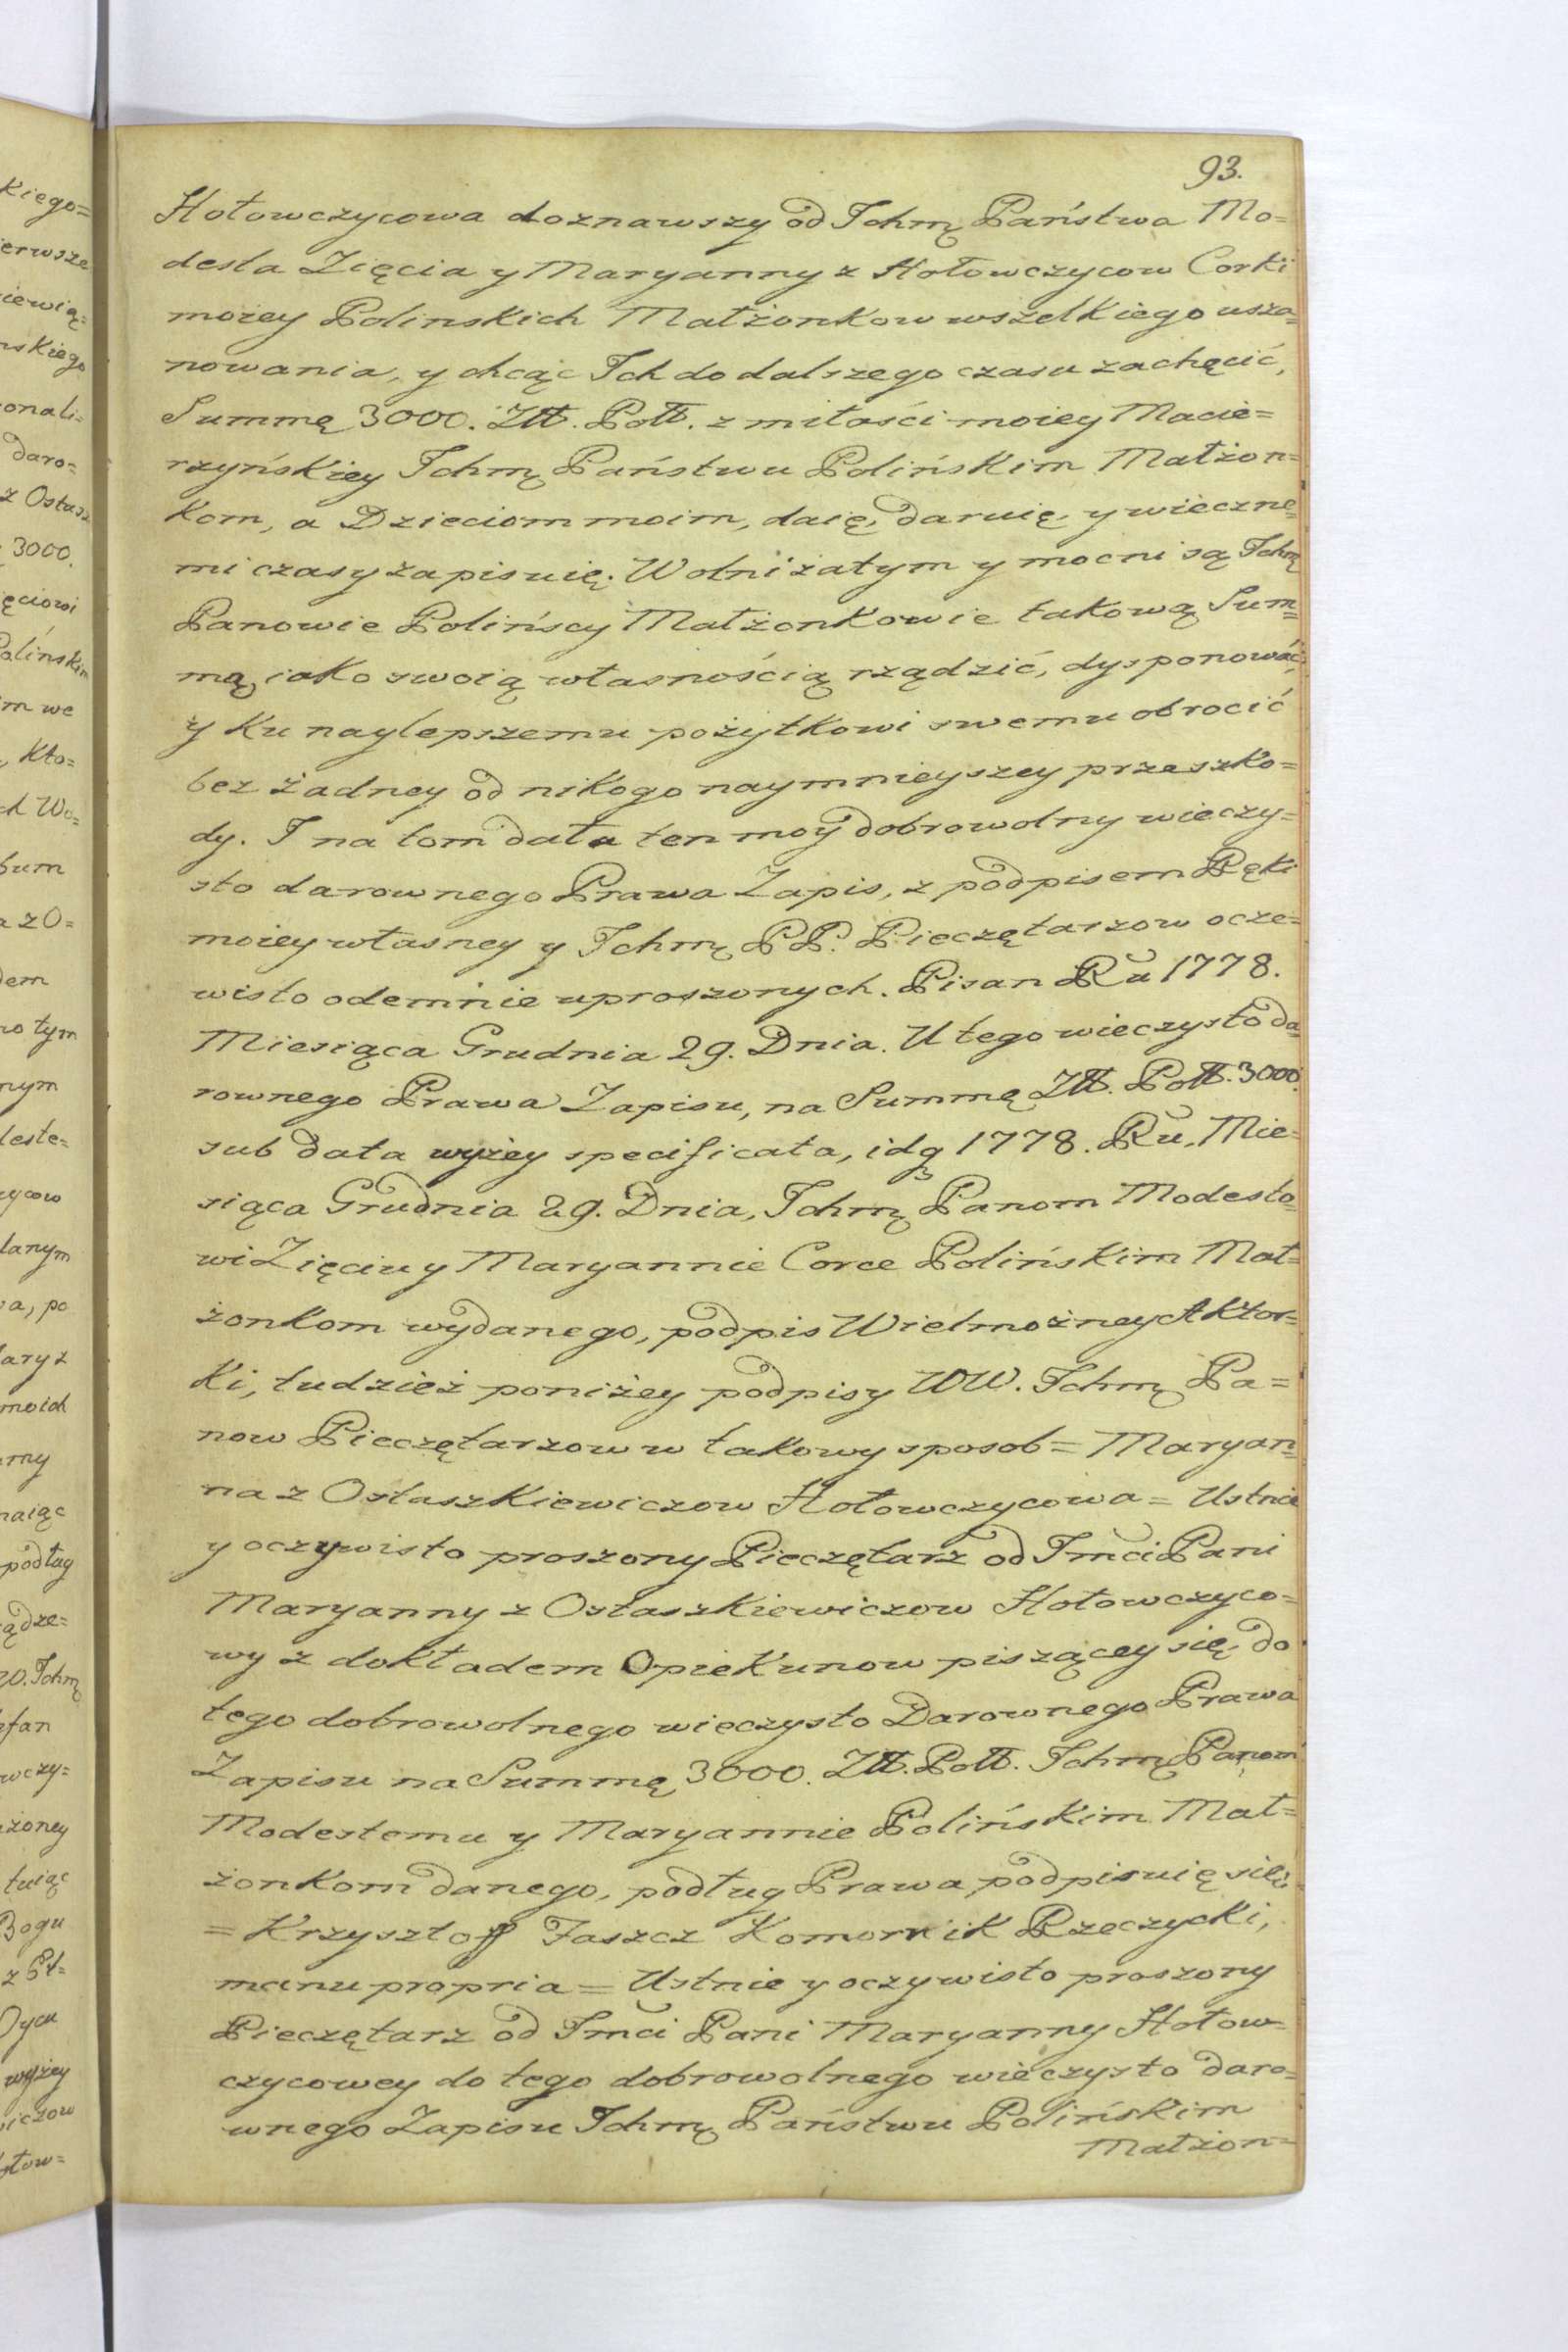 93.
Hołowczycowa doznawszy od Ichmę Państwa Mo=
desta Zięcia y Maryanny z Hołowczycow Corki
moiey Polinskich Małżonkow wszelkiego usza=
nowania, y chcąc Ich do dalszego czasu zachęcić,
Summę 3000. Złł. Poll. z miłaści moiey Macie=
rzyńskiey Ichmę Państwu Polińskim Małżon=
kom, a Dzieciom moim, daię, daruię, y wieczne=
mi czasy zapisuię. Wolni zatym y mocni są Ichmę
Panowie Polińscy Małżonkowie takową Sum=
mą, iako swoią własnością rządzić, dysponować,
y ku naylepszemu pożytkowi swemu obrocić
bez żadney od nikogo naymnieyszey przeszko=
dy. I na tom dała ten moy dobrowolny wieczy=
sto darownego Prawa Zapis, z podpisem Ręki
moiey własney y Ichmę PP. Pieczętarzow ocze=
wisto odemnie uproszonych. Pisan Ru 1778.
Miesiąca Grudnia 29. Dnia. U tego wieczysto da=
rownego Prawa Zapisu, na Summę Złł. Poll. 3000.
sub data wyżey specificata, idq 1778. Ru, Mie=
siąca Grudnia 29. Dnia, Ichmę Panom Modesto=
wi Zięciu y Maryannie Corce Polińskim Mał=
żonkom wydanego, podpis Wielmożney Aktor=
ki, tudzież poniżey podpisy WW. Ichmę Pa=
now Pieczętarzow w takowy sposob = Maryan=
na z Ostaszkiewiczow Hołowczycowa = Ustnie
y oczywisto proszony Pieczętarz od Imci Pani
Maryanny z Ostaszkiewiczow Hołowczyco=
wy z dokładem Opiekunow piszącey się, do
tego dobrowolnego wieczysto Darownego Prawa
Zapisu na Summę 3000. Złł. Poll. Ichmę Panom
Modestemu y Maryannie Polińskim Mał=
żonkom danego, podług Prawa podpisuię się,
= Krzysztoff Jaszcz Komornik Rzeczycki,
manu propria = Ustnie y oczywisto proszony
Pieczętarz od Imci Pani Maryanny Hołow=
czycowey do tego dobrowolnego wieczysto daro=
wnego Zapisu Ichmę Państwu Polińskim
Małżon=